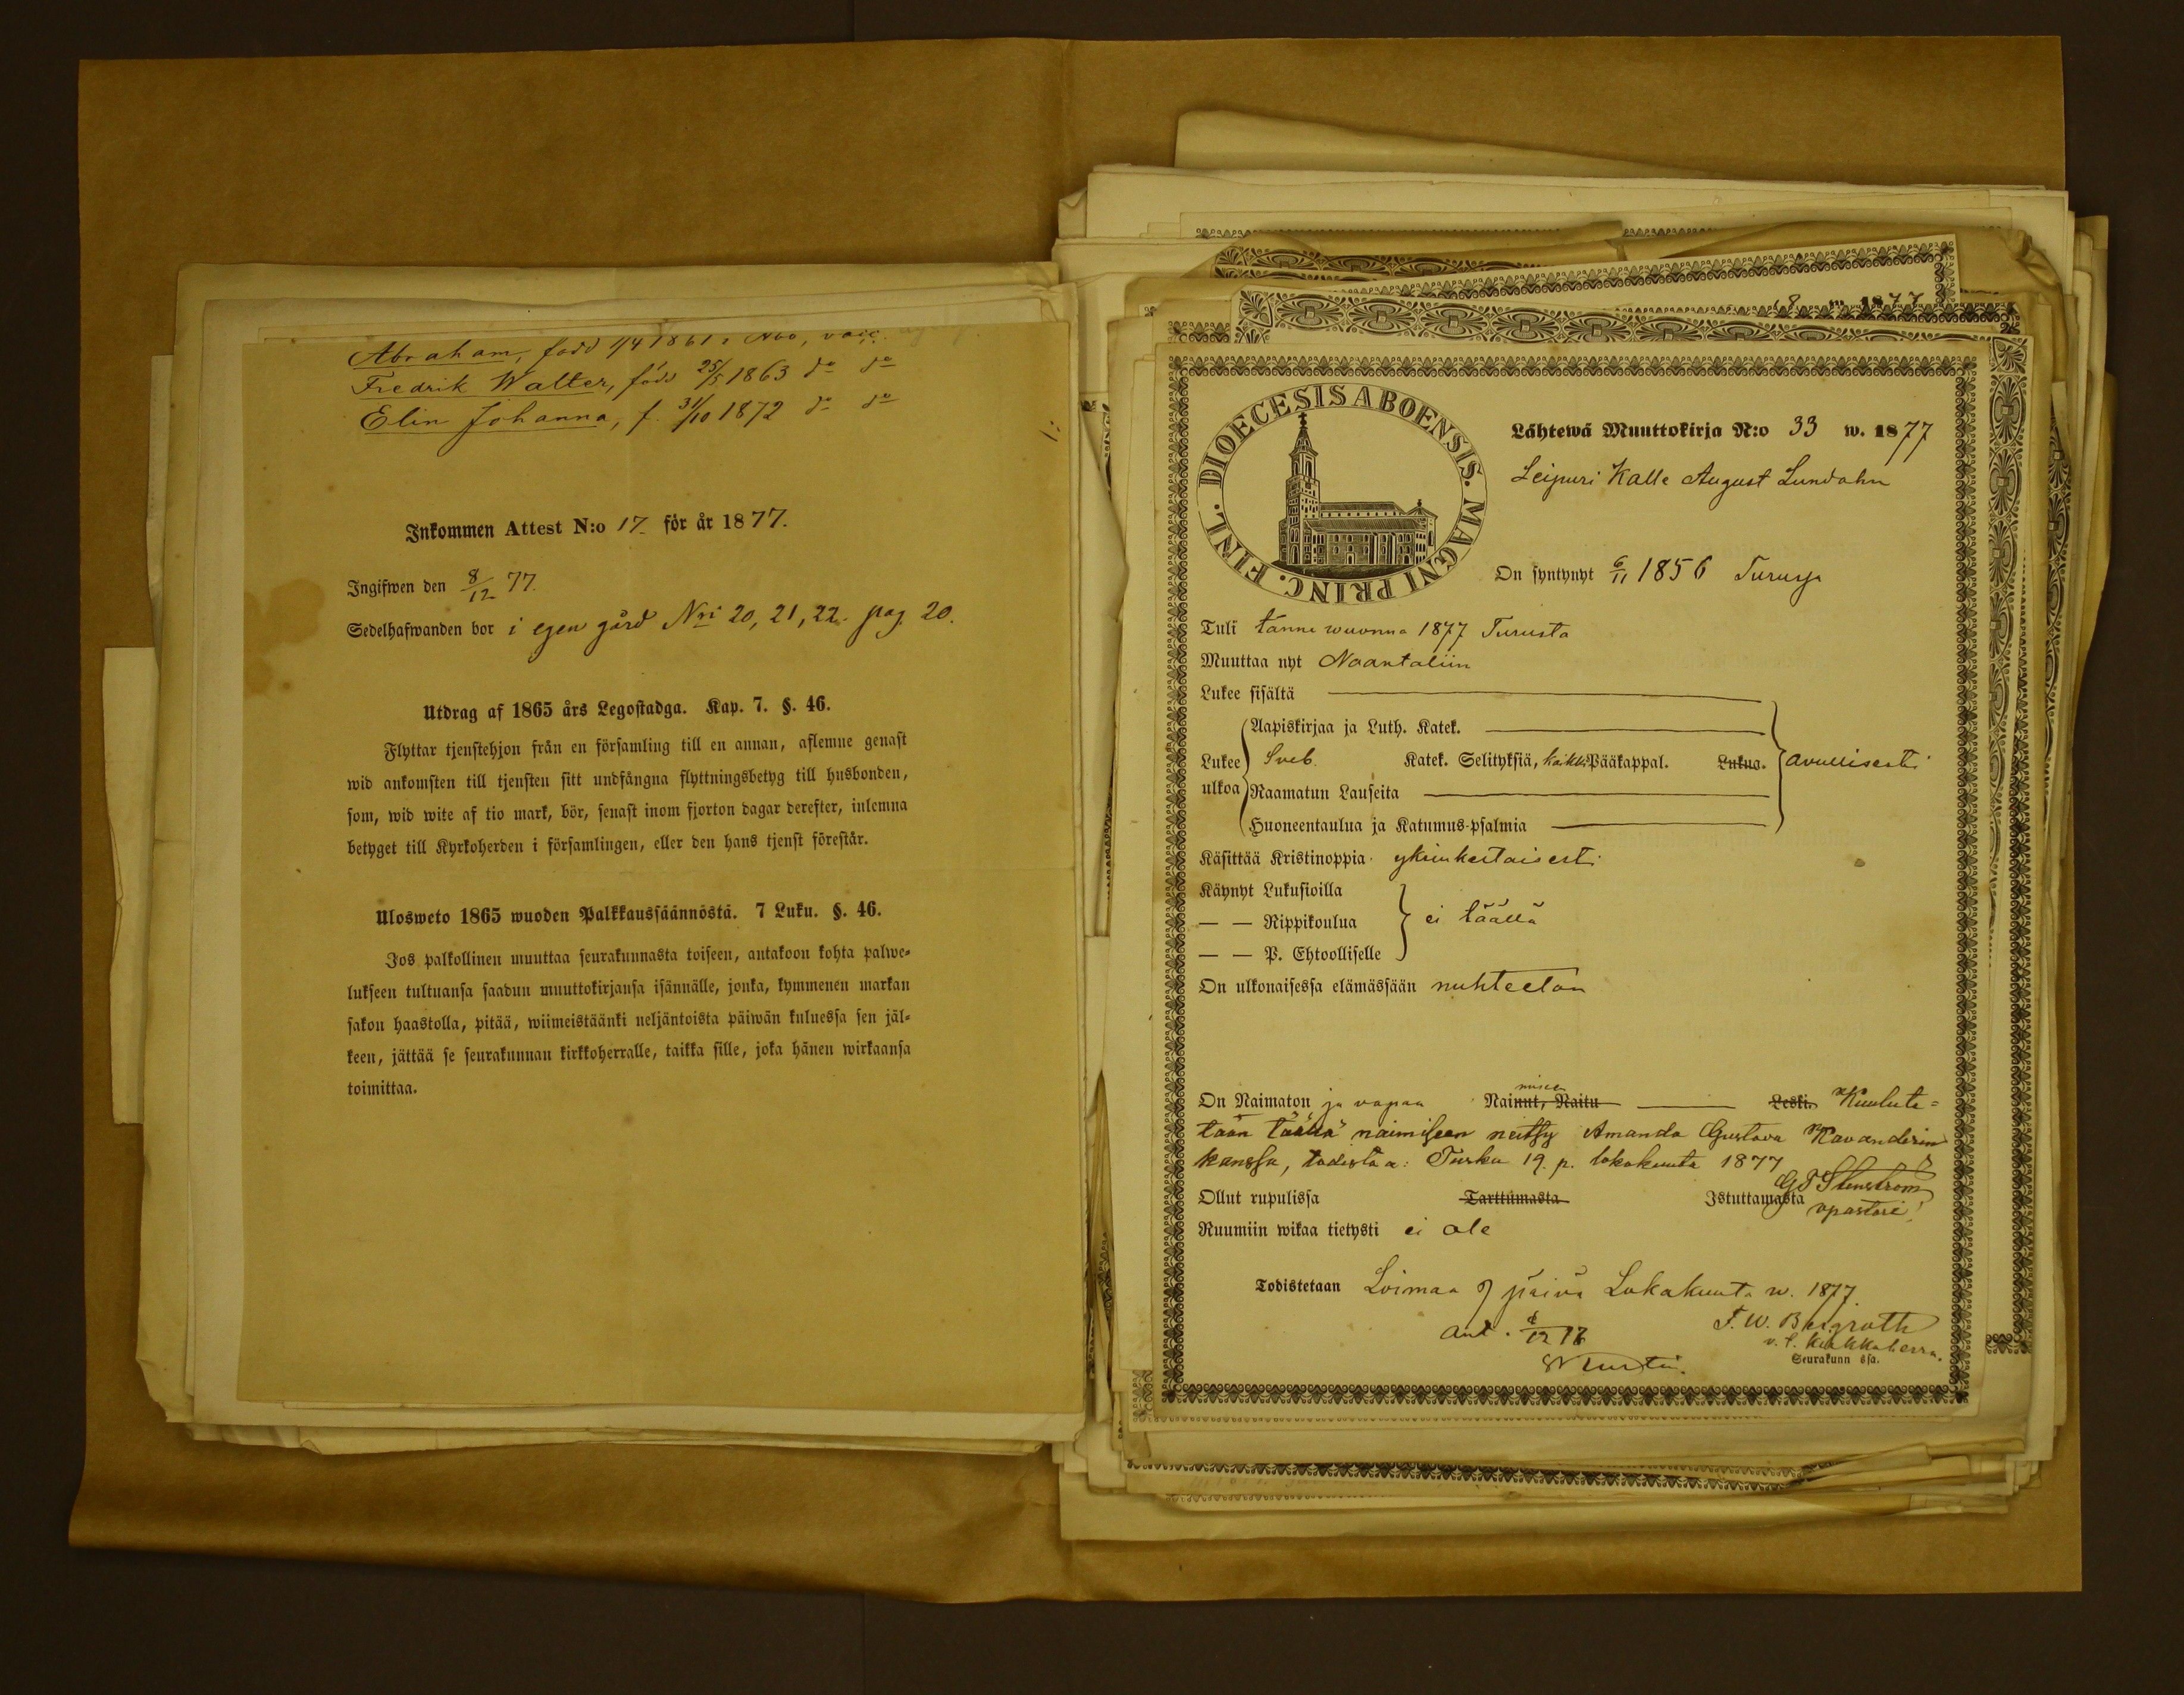 Abraham, född 1/4 1861 i Åbo, vacc.
Fredrik Walter, föds 25/5 1863 do do
Elin Johanna, f. 31/10 1872 do do
Inkommen Attest N:o 17 för år 1877.
Ingifwen den 8/12 77.
Sedelhafwanden bor i egen gård Nri 20, 21, 22. pag. 20.
Utdrag af 1865 års Legostadga. Kap. 7. §. 46.
Flyttar tjenstehjon från en församling till en annan, aflemne genast
wid ankomsten till tjensten sitt undfångna flyttningsbetyg till husbonden,
som, wid wite af tio mark, bör, senast inom fjorton dagar derefter, inlemna
betyget till Kyrkoherden i församlingen, eller den hans tjenst förestår.
Ulosweto 1865 wuoden Palkkaussäännöstä. 7 Luku. §. 46.
Jos palkollinen muuttaa seurakunnasta toiseen, antakoon kohta palwe-
lukseen tultuansa saadun muuttokirjansa isännälle, jonka, kymmenen markan
sakon haastolla, pitää, wiimeistäänki neljäntoista päiwän kuluessa sen jäl-
keen, jättää se seurakunnan kirkkoherralle, taikka sille, joka hänen wirkaansa
toimittaa.
1877
DIOECESIS ABOENSIS. MAGNI PRINC. FINL.
Lähtewä Muuttokirja N:o 33 w. 1877
Leipuri Kalle August Lundahn
On syntynyt 6/11 1856 Turusja
Tuli tänne wuonna 1877 Turusta
Muuttaa nyt Naantaliin
Lukee sisältä
Aapiskirjaa ja Luth. Katek.
Lukee ulkoa Sveb. Katek. Selityksiä, kaikki Pääkappal. Lukua. avullisesti
Raamatun Lauseita
Huoneentaulua ja Katumus-psalmia
Käsittää Kristinoppia yksinkertaisesti
Käynyt Lukusioilla
— — Rippikoulua ei täällä
— — P. Ehtoolliselle
On ulkonaisessa elämässään nuhteeton
On Naimaton ja vapaa Nainut, Naitu Leski. Kuulute-
taan täällä naimiseen neitsy Amanda Gustava Kavanderin
kanssa, todistaa: Turku 19. p. lokakuuta 1877
G T Stenström
Ollut rupulissa Tarttumasta Istuttamasta vpastori
Ruumiin wikaa tietysti ei ole
Todistetaan Loimaa 9 päivä Lokakuuta w. 1877.
F. W. Bergroth
v. t. kirkkoherra.
Seurakunn ssa.